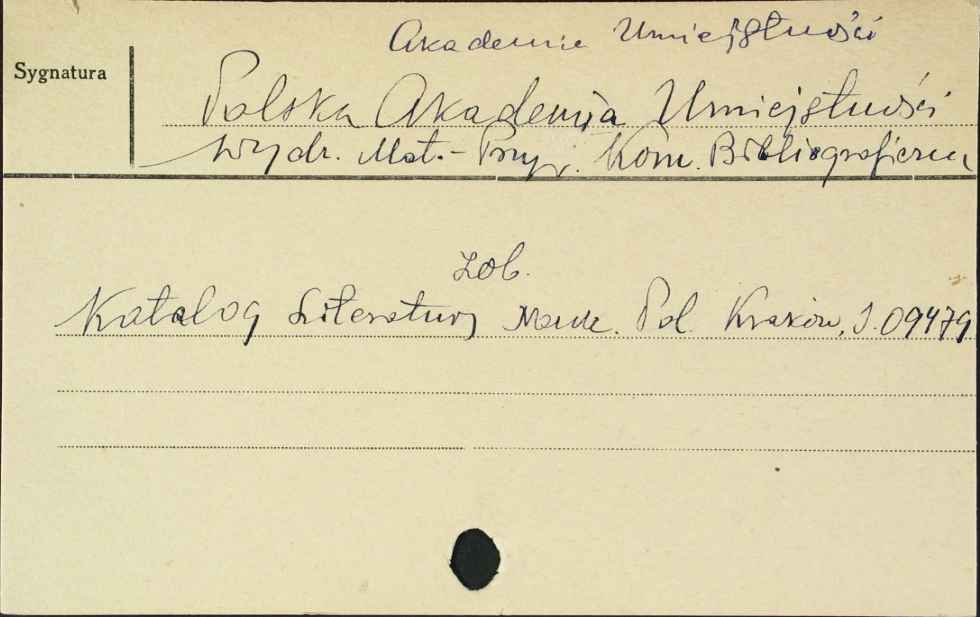 Akademie Umiejętności
Sygnatura
Polska Akademja Umiejętności
Wydz. Mat.-Przyr. Kom. Bibliograficzna
zob.
Katalog Literatury Nauk. Pol. Kraków, J. 09479